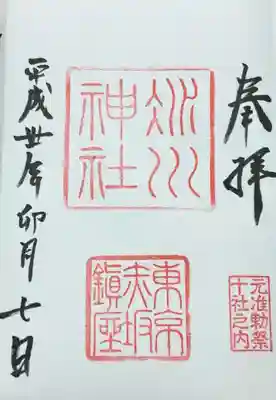 奉拝
氷川
神社
元准勅祭
十社之内
東京
赤坂
鎮座
平成卅年卯月七日